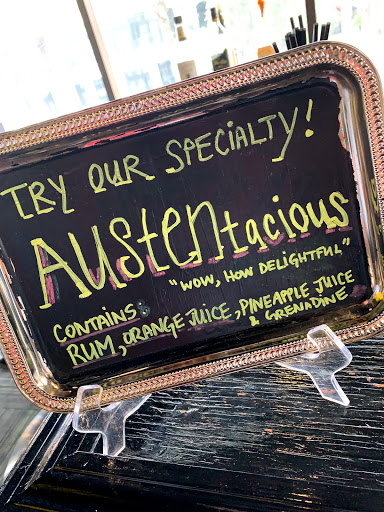 TRY OUR SPECIALTY!
AUSTENtacious
"WOW, HOW DELIGHTFUL"
CONTAINS:
RUM, ORANGE JUICE, PINEAPPLE JUICE
& GRENADINE